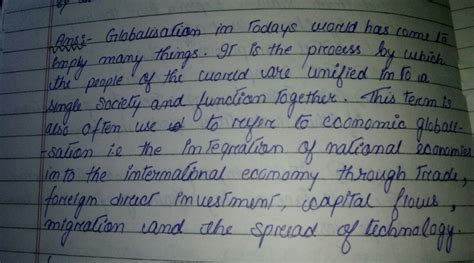 Ans:- Globalisation in Todays world has come to
imply many things. It is the process by which
the people of the world are unified into a
single society and function together. This term is
also often use to refer to economic globali-
-sation ie the integration of national economies
into the international economy through trade,
foreign direct investment, capital flows,
migration and the spread of technology.